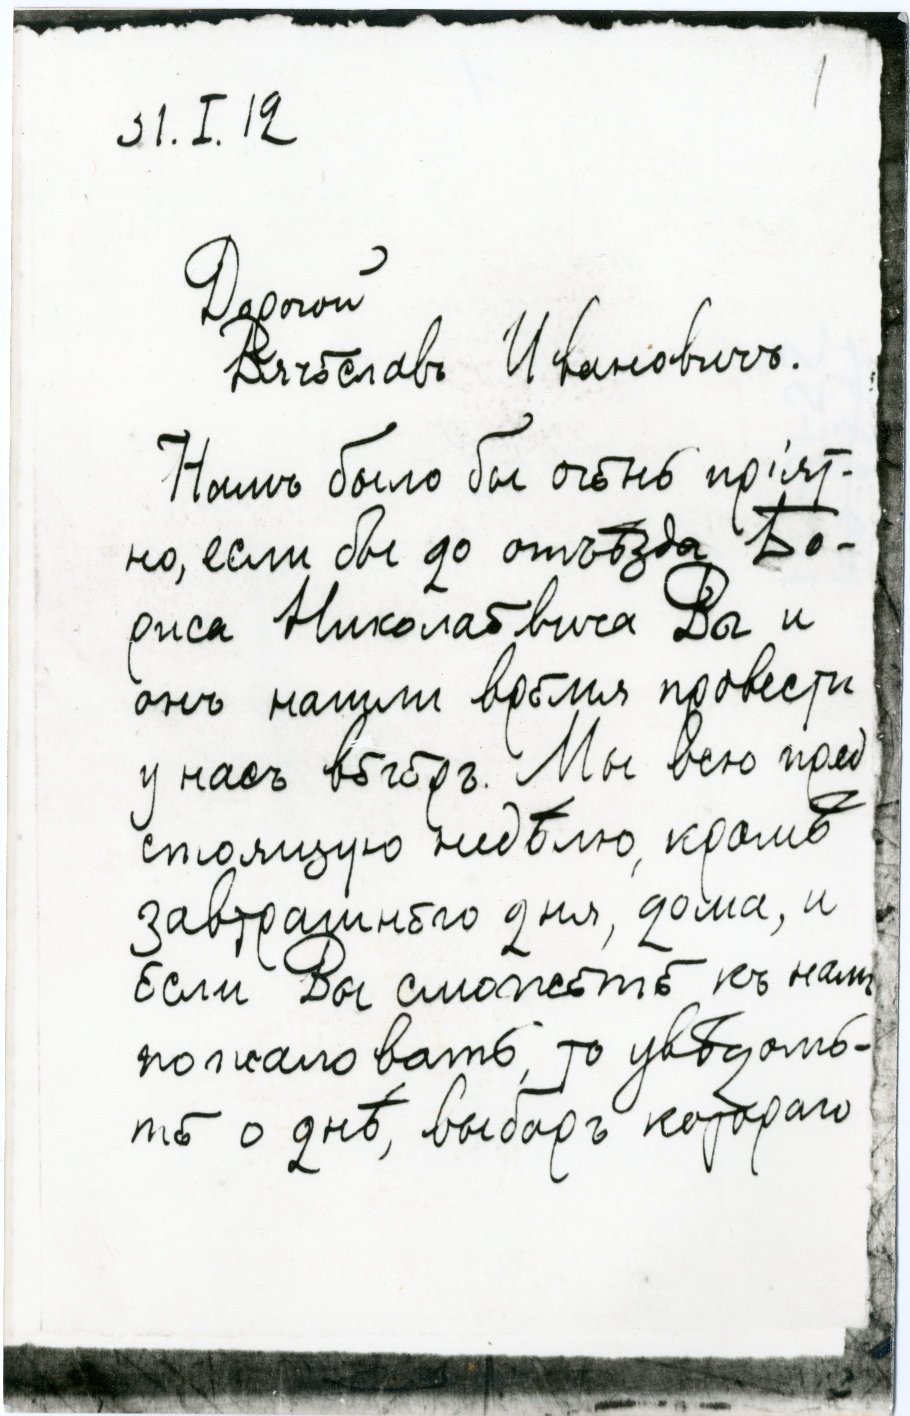 1
31. I. 12
Дорогой
Вячеславъ Ивановичъ.
Намъ было бы очень прiят-
но, если бы до отъѣзда Бо-
риса Николаевича Вы и
онъ нашли время провести
у насъ вечеръ. Мы всю пред
стоящую недѣлю, кромѣ
завтрашнего дня, дома, и
если Вы сможете къ намъ
пожаловать, то увѣдомь-
те о днѣ, выборъ котораго